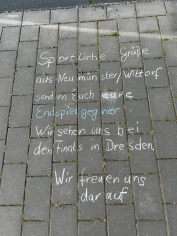 Sportliche Grüße
aus Neumünster/Wittorf
senden Euch eure
Endspielgegner
Wir sehen uns bei
den Finals in Dresden.
Wir freuen uns
darauf